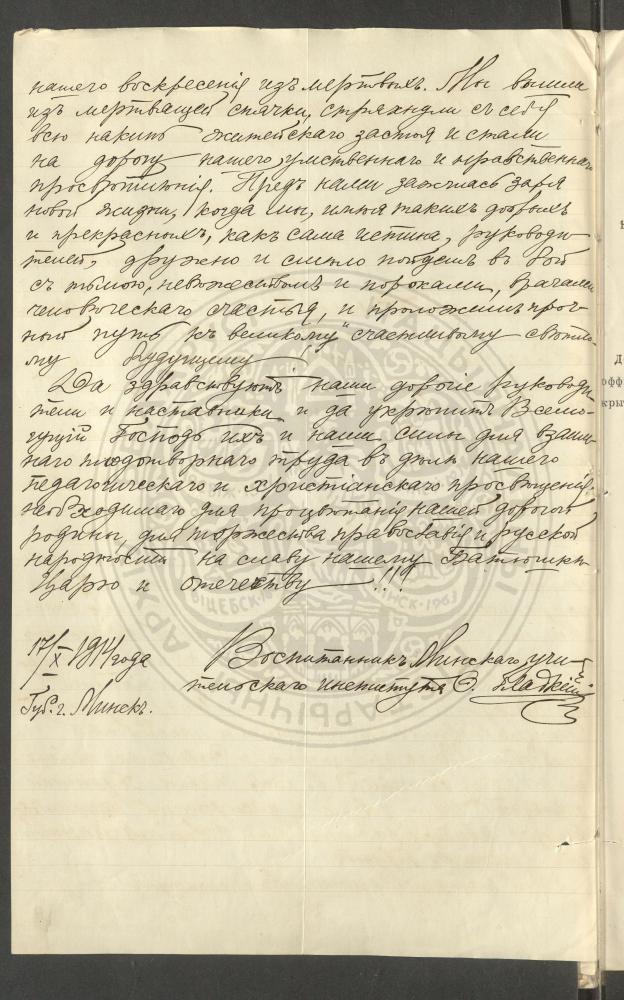 нашего воскресенія изъ мертвыхъ. Мы вышли
изъ мертвящей спячки, стряхнули съ себя
всю накипь житейскаго застоя и стали
на дорогу нашего умственнаго и нравственнаго
просвѣтленія. Предъ нами зажглась заря
новой жизни, когда мы, имѣя такихъ добрыхъ
и прекрасныхъ, какъ сама истина, руководи-
телей, дружно и смѣло пойдемъ въ бой
съ тьмою, невѣжествомъ и пороками, врагами
человѣческаго счастья, и проложимъ проч-
ный путь къ великому и счастливому свѣтло-
му будущему!
Да здравствуютъ наши дорогіе руководи-
тели и наставники и да укрѣпитъ Всемо-
гущій Господь ихъ и наши силы для взаим-
наго плодотворнаго труда въ дѣлѣ нашего
педагогическаго и христіанскаго просвѣщенія,
необходимаго для процвѣтанія нашей дорогой
родины, для торжества православія и русской
народности на славу нашему Батюшкѣ
Царю и отечеству!!!
17/X 1914 года
Воспитанникъ Минскаго учи-
тельскаго института
Губ. г. Минскъ.